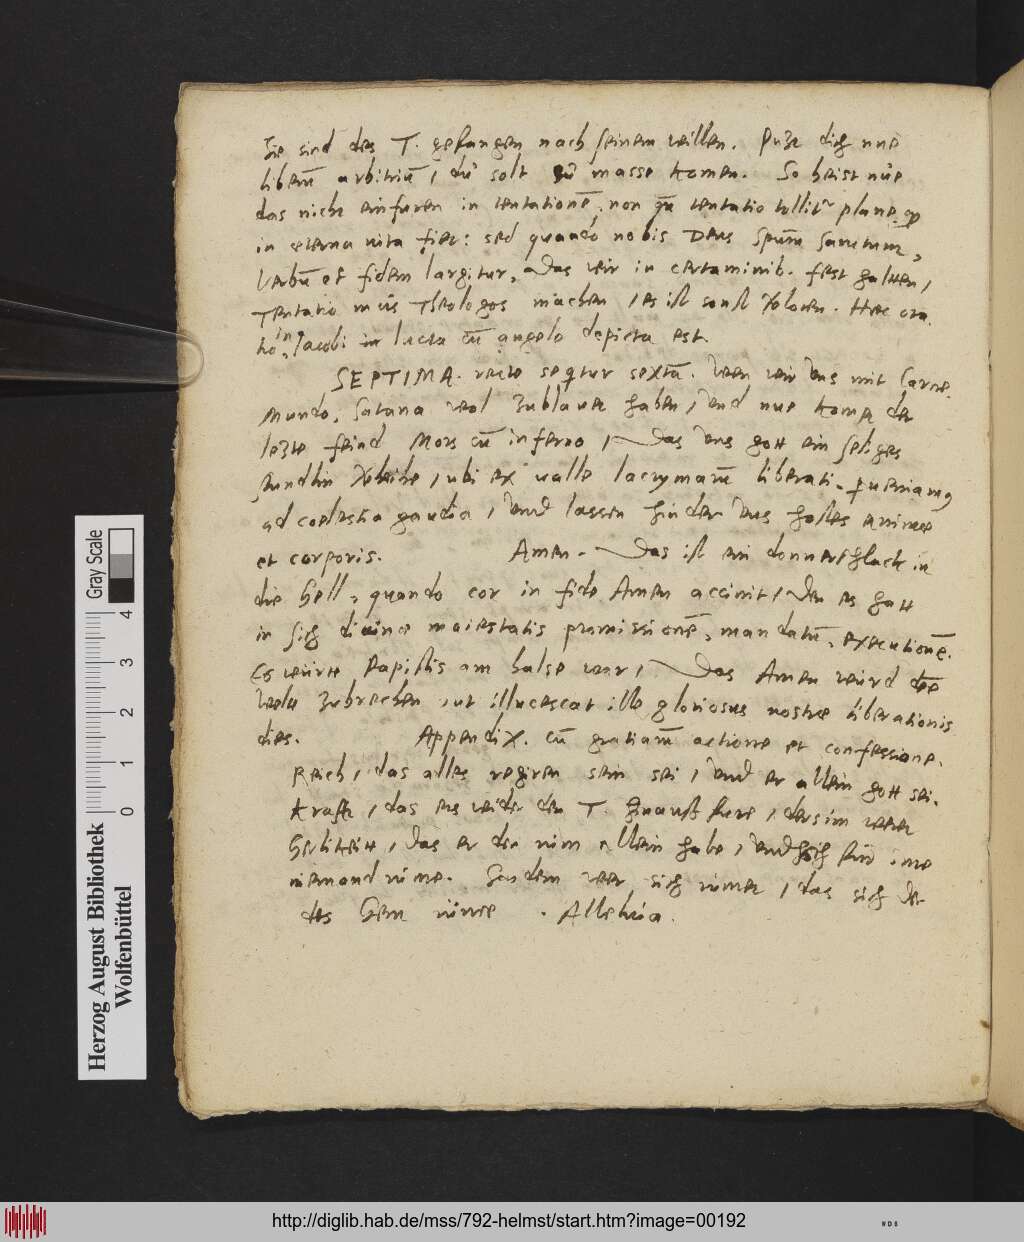 Sie sind des T. gefangen nach seinem willen. Putz dich nue
liberũ arbitriũ, du solt zu masse komen. So heist nue
das nicht einfuren in tentationẽ, non qđ tentatio tollitr plane, qđ
in eterna uita fiet: sed quando nobis Deus Spũm sanctum,
Verbũ et fidem largitur, das wir in certaminib. fest halten,
Tentatio mus Theologos machen, es ist sonst verloren. Hec ora
tio in Jacobi in lucta cũ angelo depicta est.
SEPTIMA. recte seqtur sextã. Wen wir uns mit Carne
Mundo, Satana wol zublauet haben, und nue kompt der
letzte feind Mors cũ inferno, Das uns gott ein seliges
stundlin verleihe, ubi ex ualle lacrymarũ liberati, pueniamus
ad coelestia gaudia, und lassen hinder uns hostes animae
et corporis. Amen. Das ist ein donnerschlack in
die Hell, quando cor in fide Amen accinit, den es hatt
in sich diuinae maiestatis promissionẽ, mandatũ, executionẽ.
Es würt Papistis am halse war, Das Amen würd die
Welt zubrechen, ut illucescat ille gloriosus nostrae liberationis
dies. Appendix. cũ gratiarũ actione et confessione.
Reich, das alles regiren sein sei, und er allein gott sei.
Krafft, das ers wider den T. hinauß fure, der sim weret
Herlikeit, das er den rüm allein habe, und sich für ime
niemand rüme. Sondem wer sich rümet, das sich der
des Hern rüme. Alleluia.